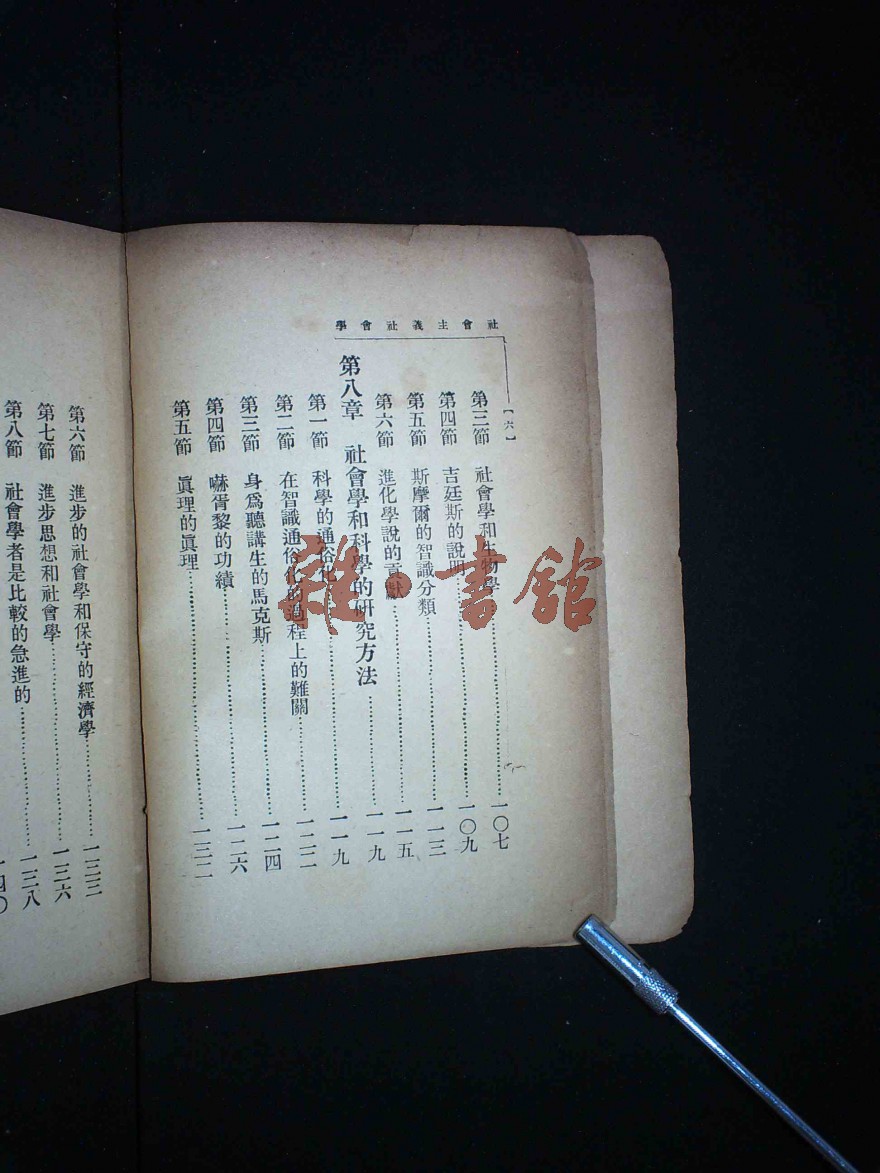 社會主義社會學
【六】
第三節 社會學和生物學……一〇七
第四節 吉廷斯的說明……一〇九
第五節 斯摩爾的智識分類……一一三
第六節 進化學說的貢獻……一一五
第八章 社會學和科學的研究方法……一一九
第一節 科學的通俗化……一一九
第二節 在智識通俗化的過程上的難關……一二二
第三節 身爲聽講生的馬克斯……一二四
第四節 嚇胥黎的功績……一二六
第五節 眞理的眞理……一三二
第六節 進步的社會學和保守的經濟學……一三三
第七節 進步思想和社會學……一三六
第八節 社會學者是比較的急進的……一三八
一四〇
雜·書館